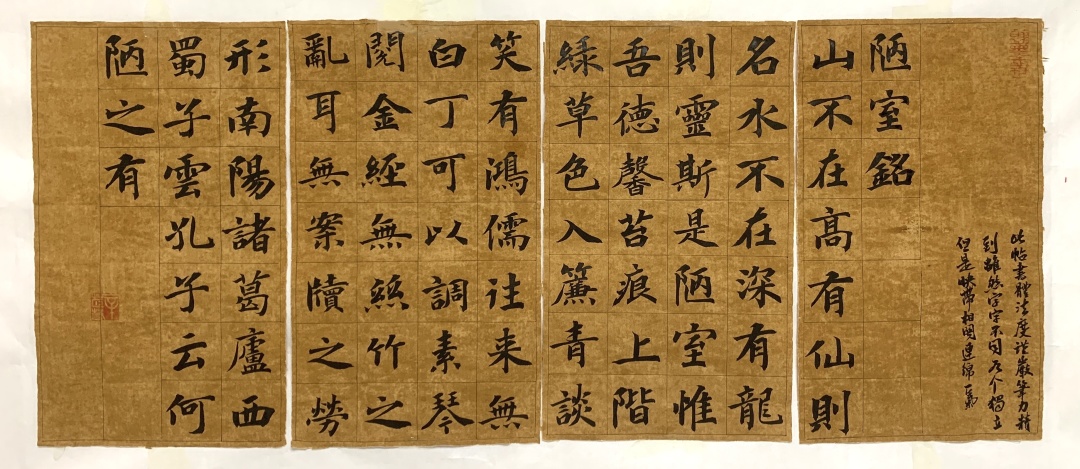 此帖書體法度謹嚴筆力精
到雖然字字不同各个獨立
但是映帶相関連綿
陋室銘
山不在高有仙則
名水不在深有龍
則靈斯是陋室惟
吾德馨苔痕上階
綠草色入簾青談
笑有鴻儒往来無
白丁可以調素琴
閱金經無絲竹之
亂耳無案牘之勞
形南陽諸葛廬西
蜀子雲孔子云何
陋之有